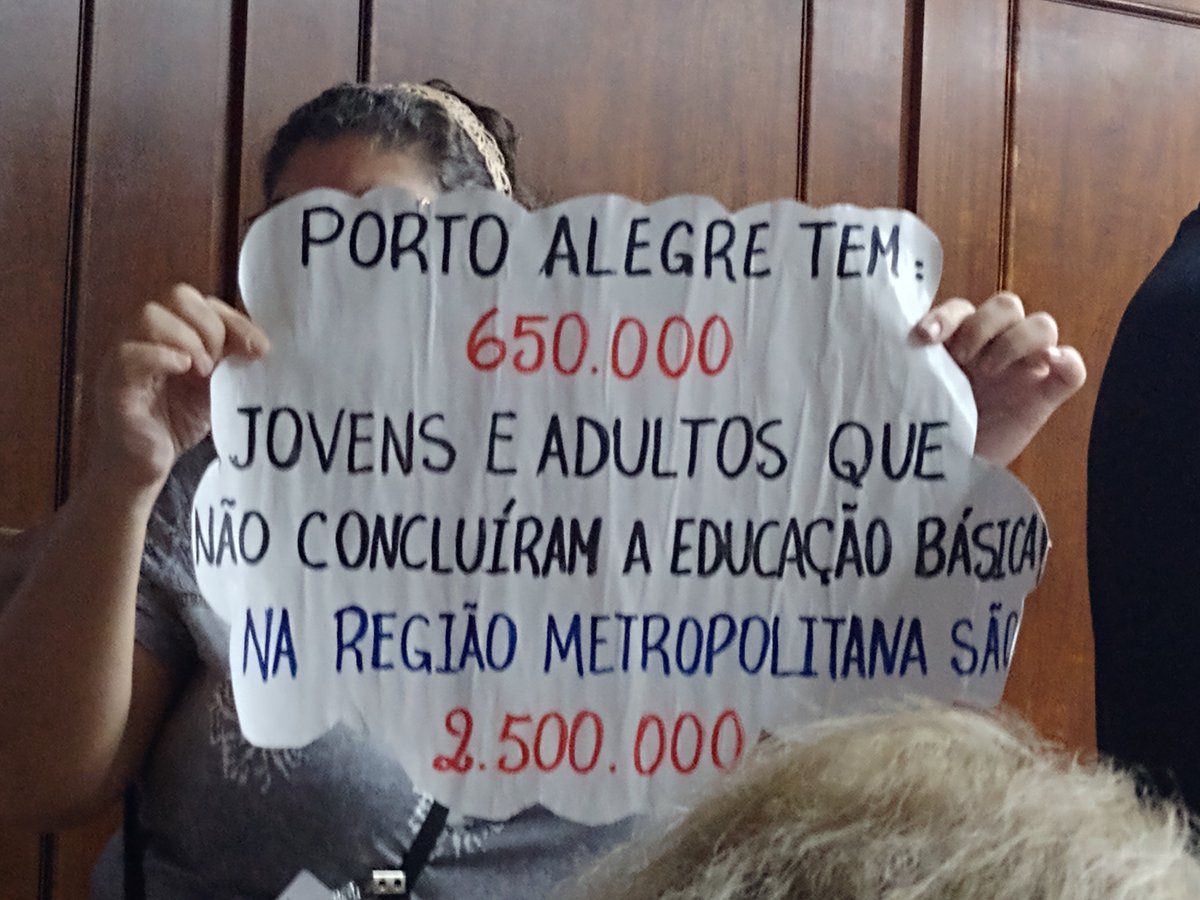 PORTO ALEGRE TEM:
650.000
JOVENS E ADULTOS QUE
NÃO CONCLUÍRAM A EDUCAÇÃO BÁSICA
NA REGIÃO METROPOLITANA SÃO
2.500.000